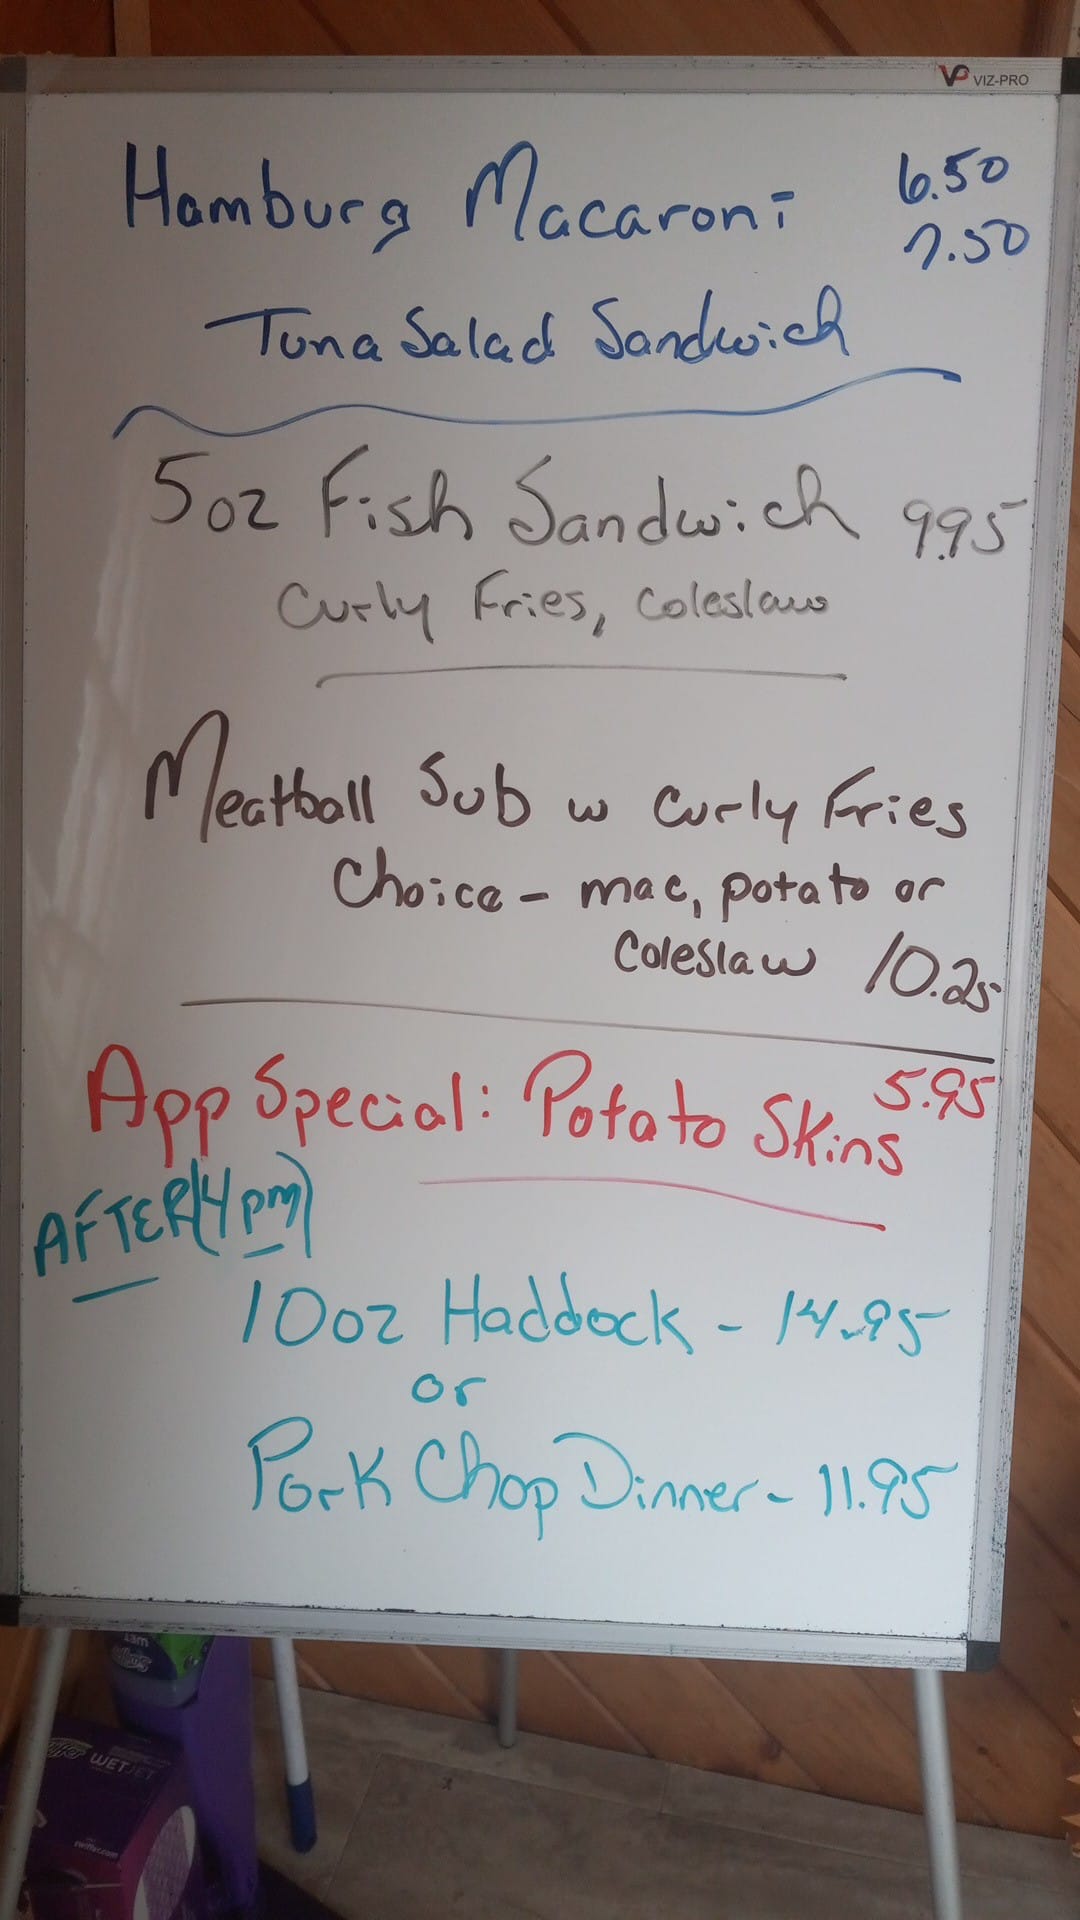 VP VIZ-PRO
Hamburg Macaroni 6.50
7.50
Tuna Salad Sandwich
5oz Fish Sandwich 9.95
Curly Fries, Coleslaw
Meatball Sub w Curly Fries
Choice - mac, potato or
Coleslaw 10.25
App Special: Potato Skins 5.95
AFTER (4pm)
10oz Haddock - 14.95
or
Pork Chop Dinner - 11.95
WETJET